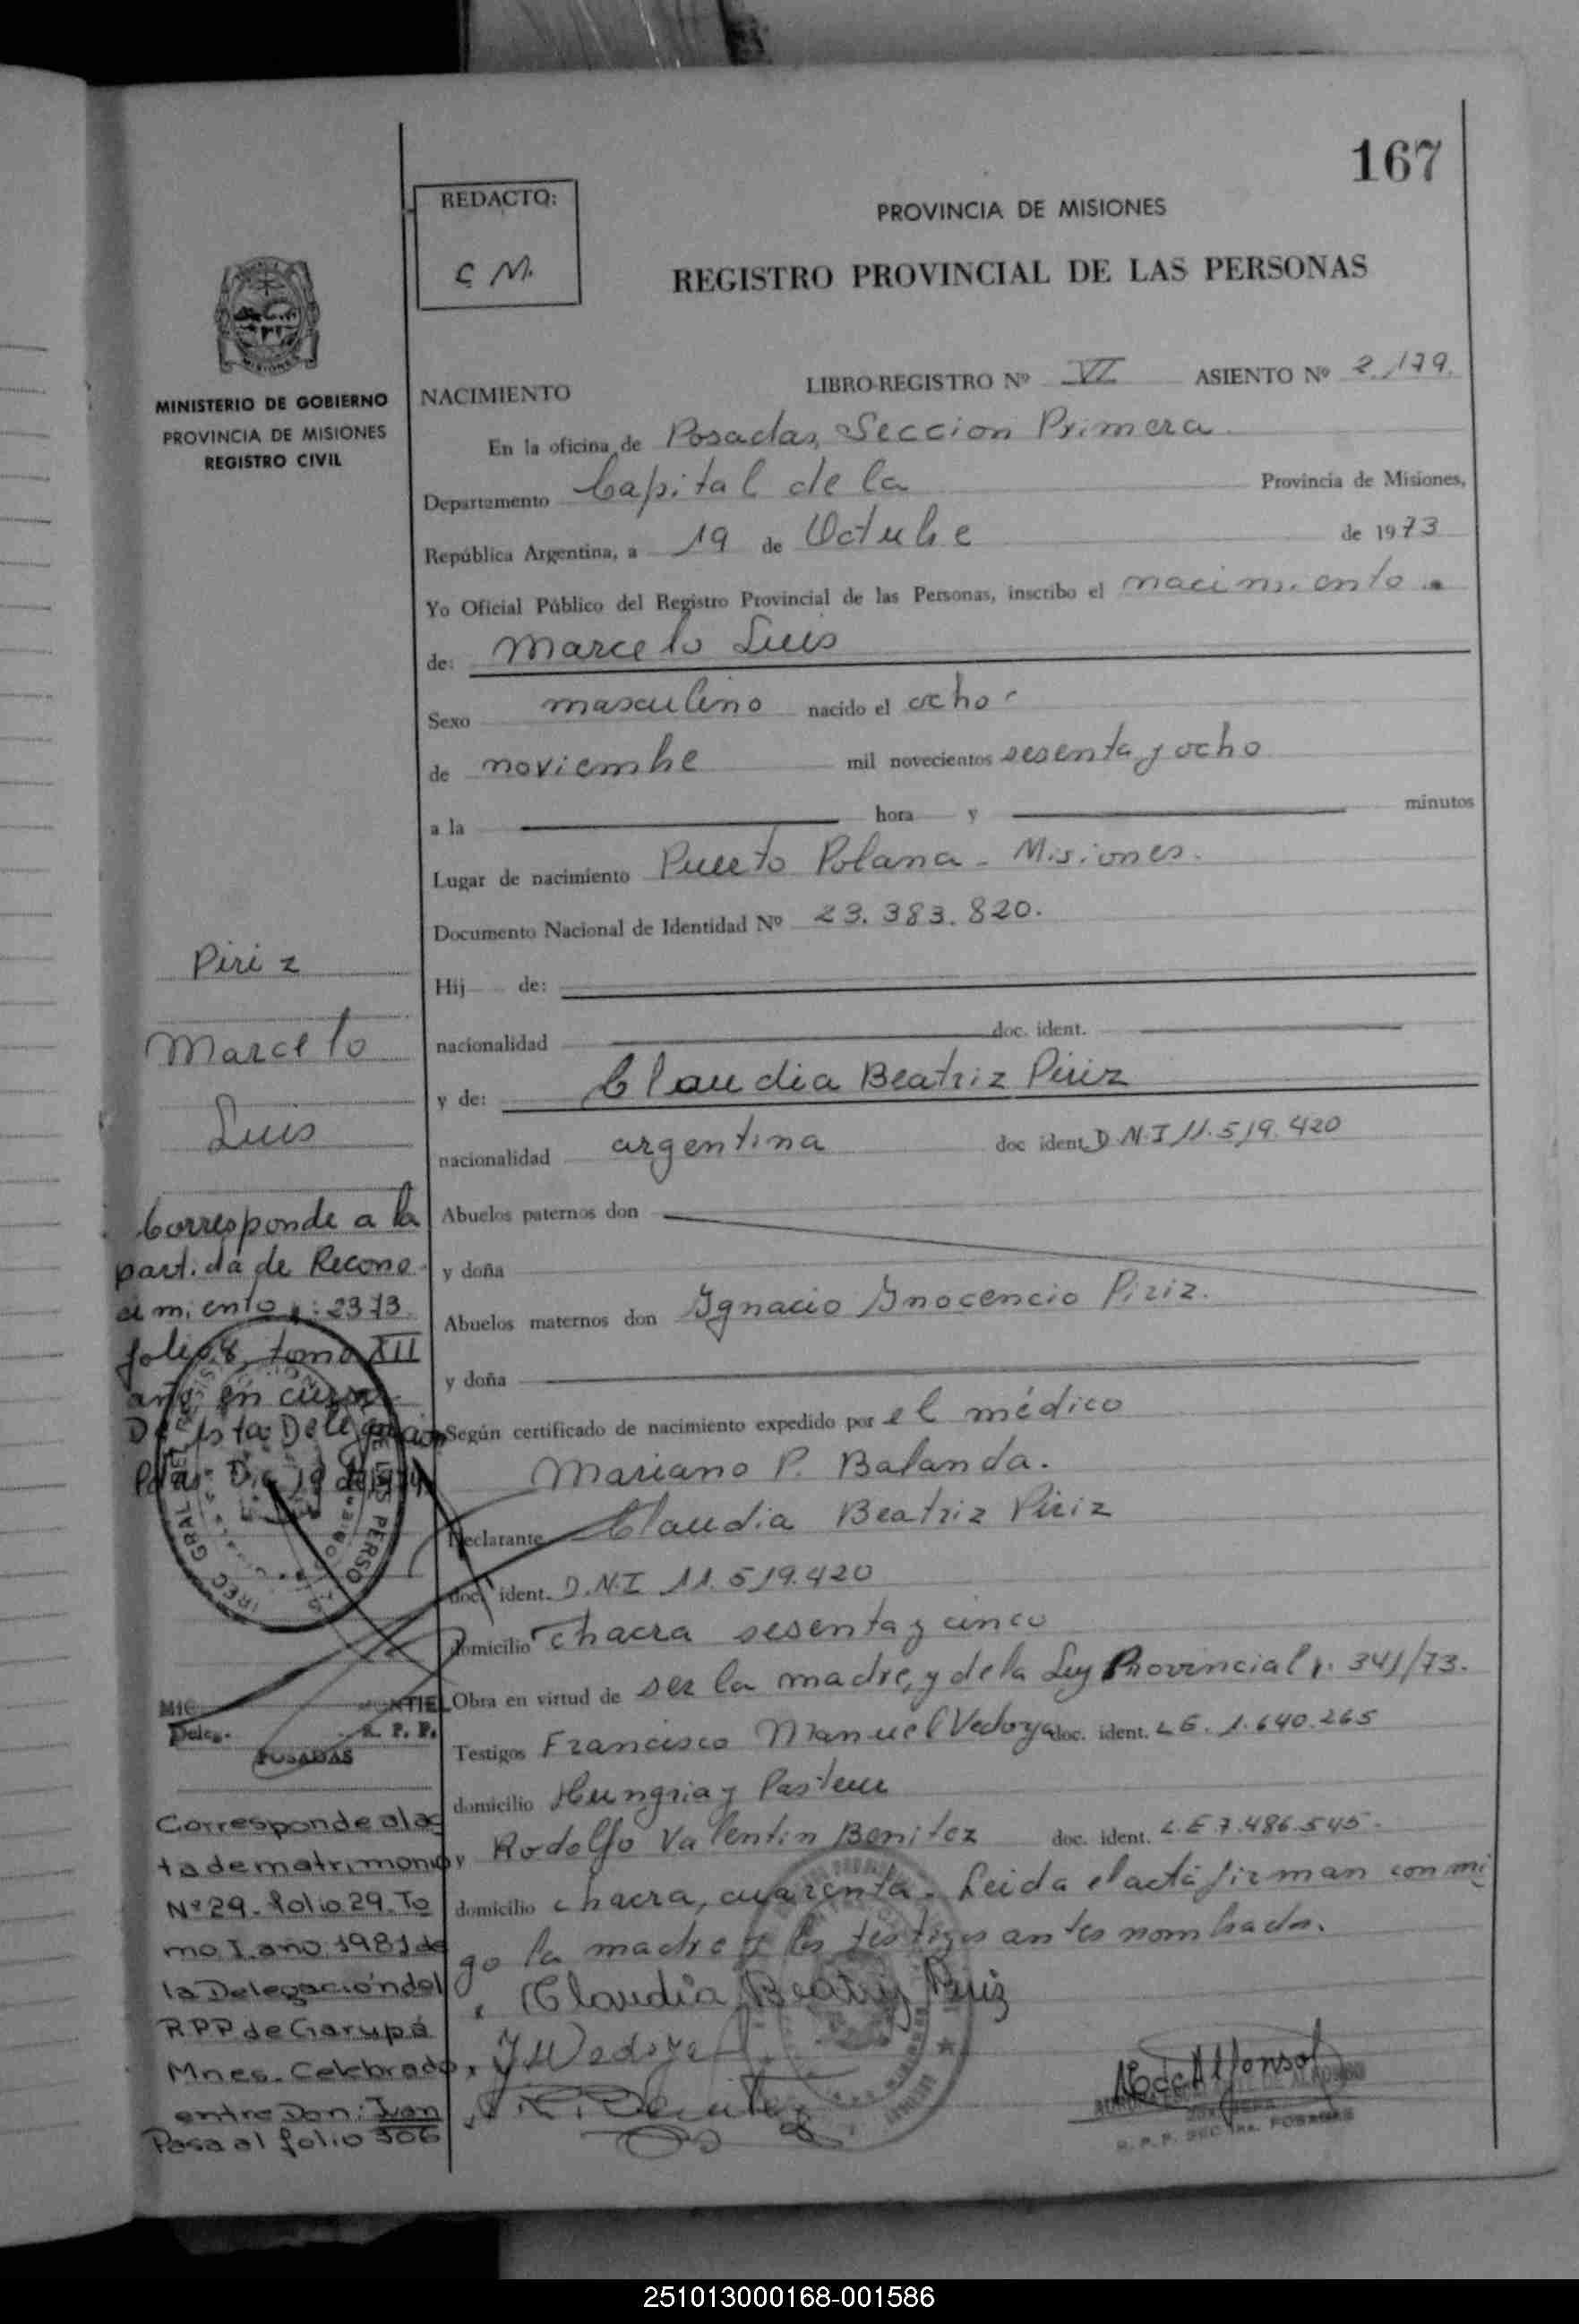 167
REDACTO:
C M.
PROVINCIA DE MISIONES
REGISTRO PROVINCIAL DE LAS PERSONAS
MISIONES
MINISTERIO DE GOBIERNO
PROVINCIA DE MISIONES
REGISTRO CIVIL
NACIMIENTO LIBRO-REGISTRO Nº VI ASIENTO Nº 2.179.
En la oficina de Posadas, Seccion Primera
Departamento Capital de la Provincia de Misiones,
República Argentina, a 19 de Octubre de 1973
Yo Oficial Público del Registro Provincial de las Personas, inscribo el nacimiento
de: Marcelo Luis
Sexo masculino nacido el ocho
de noviembre mil novecientos sesenta y ocho
a la hora y minutos
Lugar de nacimiento Puerto Polana - Misiones.
Documento Nacional de Identidad Nº 23.383.820.
Hij de:
nacionalidad doc. ident.
y de: Claudia Beatriz Piriz
nacionalidad argentina doc ident. D.N.I 11.519.420
Abuelos paternos don
y doña
Abuelos maternos don Ignacio Inocencio Piriz.
y doña
Según certificado de nacimiento expedido por el médico
Mariano P. Balanda.
Declarante Claudia Beatriz Piriz
doc. ident. D.N.I 11.519.420
domicilio chacra sesenta y cinco
Obra en virtud de ser la madre, y de la Ley Provincial n. 341/73.
Testigos Francisco Manuel Vedoya doc. ident. L E. 1.640.265
domicilio Hungria y Pasteur
y Rodolfo Valentin Benitez doc. ident. L.E 7.486.545.
domicilio chacra, cuarenta. Leida el acta firman con mi
go la madre y los testigos antes nombrados.
Claudia Beatriz Piriz
Piriz
Marcelo
Luis
Corresponde a la
partida de Recono
cimiento : 2373
folio 8, tomo XII
año en curso
De esta Delegacion
Pdas Dic 19 de
POSADAS
Corresponde al ac
ta de matrimonio
Nº 29. folio 29. To
mo I. año 1981 de
la Delegación del
RPP de Garupá
Mnes. Celebrado
entre Don: Juan
Pasa al folio 306
R. P. P. SEC 1ra. POSADAS
251013000168-001586